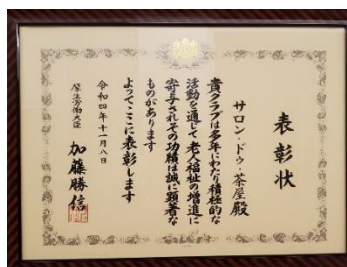 表彰状
サロン・ドゥ・茶屋殿
貴クラブは多年にわたり積極的な
活動を通じて老人福祉の増進に
寄与されその功績は誠に顕著な
ものがあります
よってここに表彰します
令和四年十一月八日
厚生労働大臣 加藤勝信